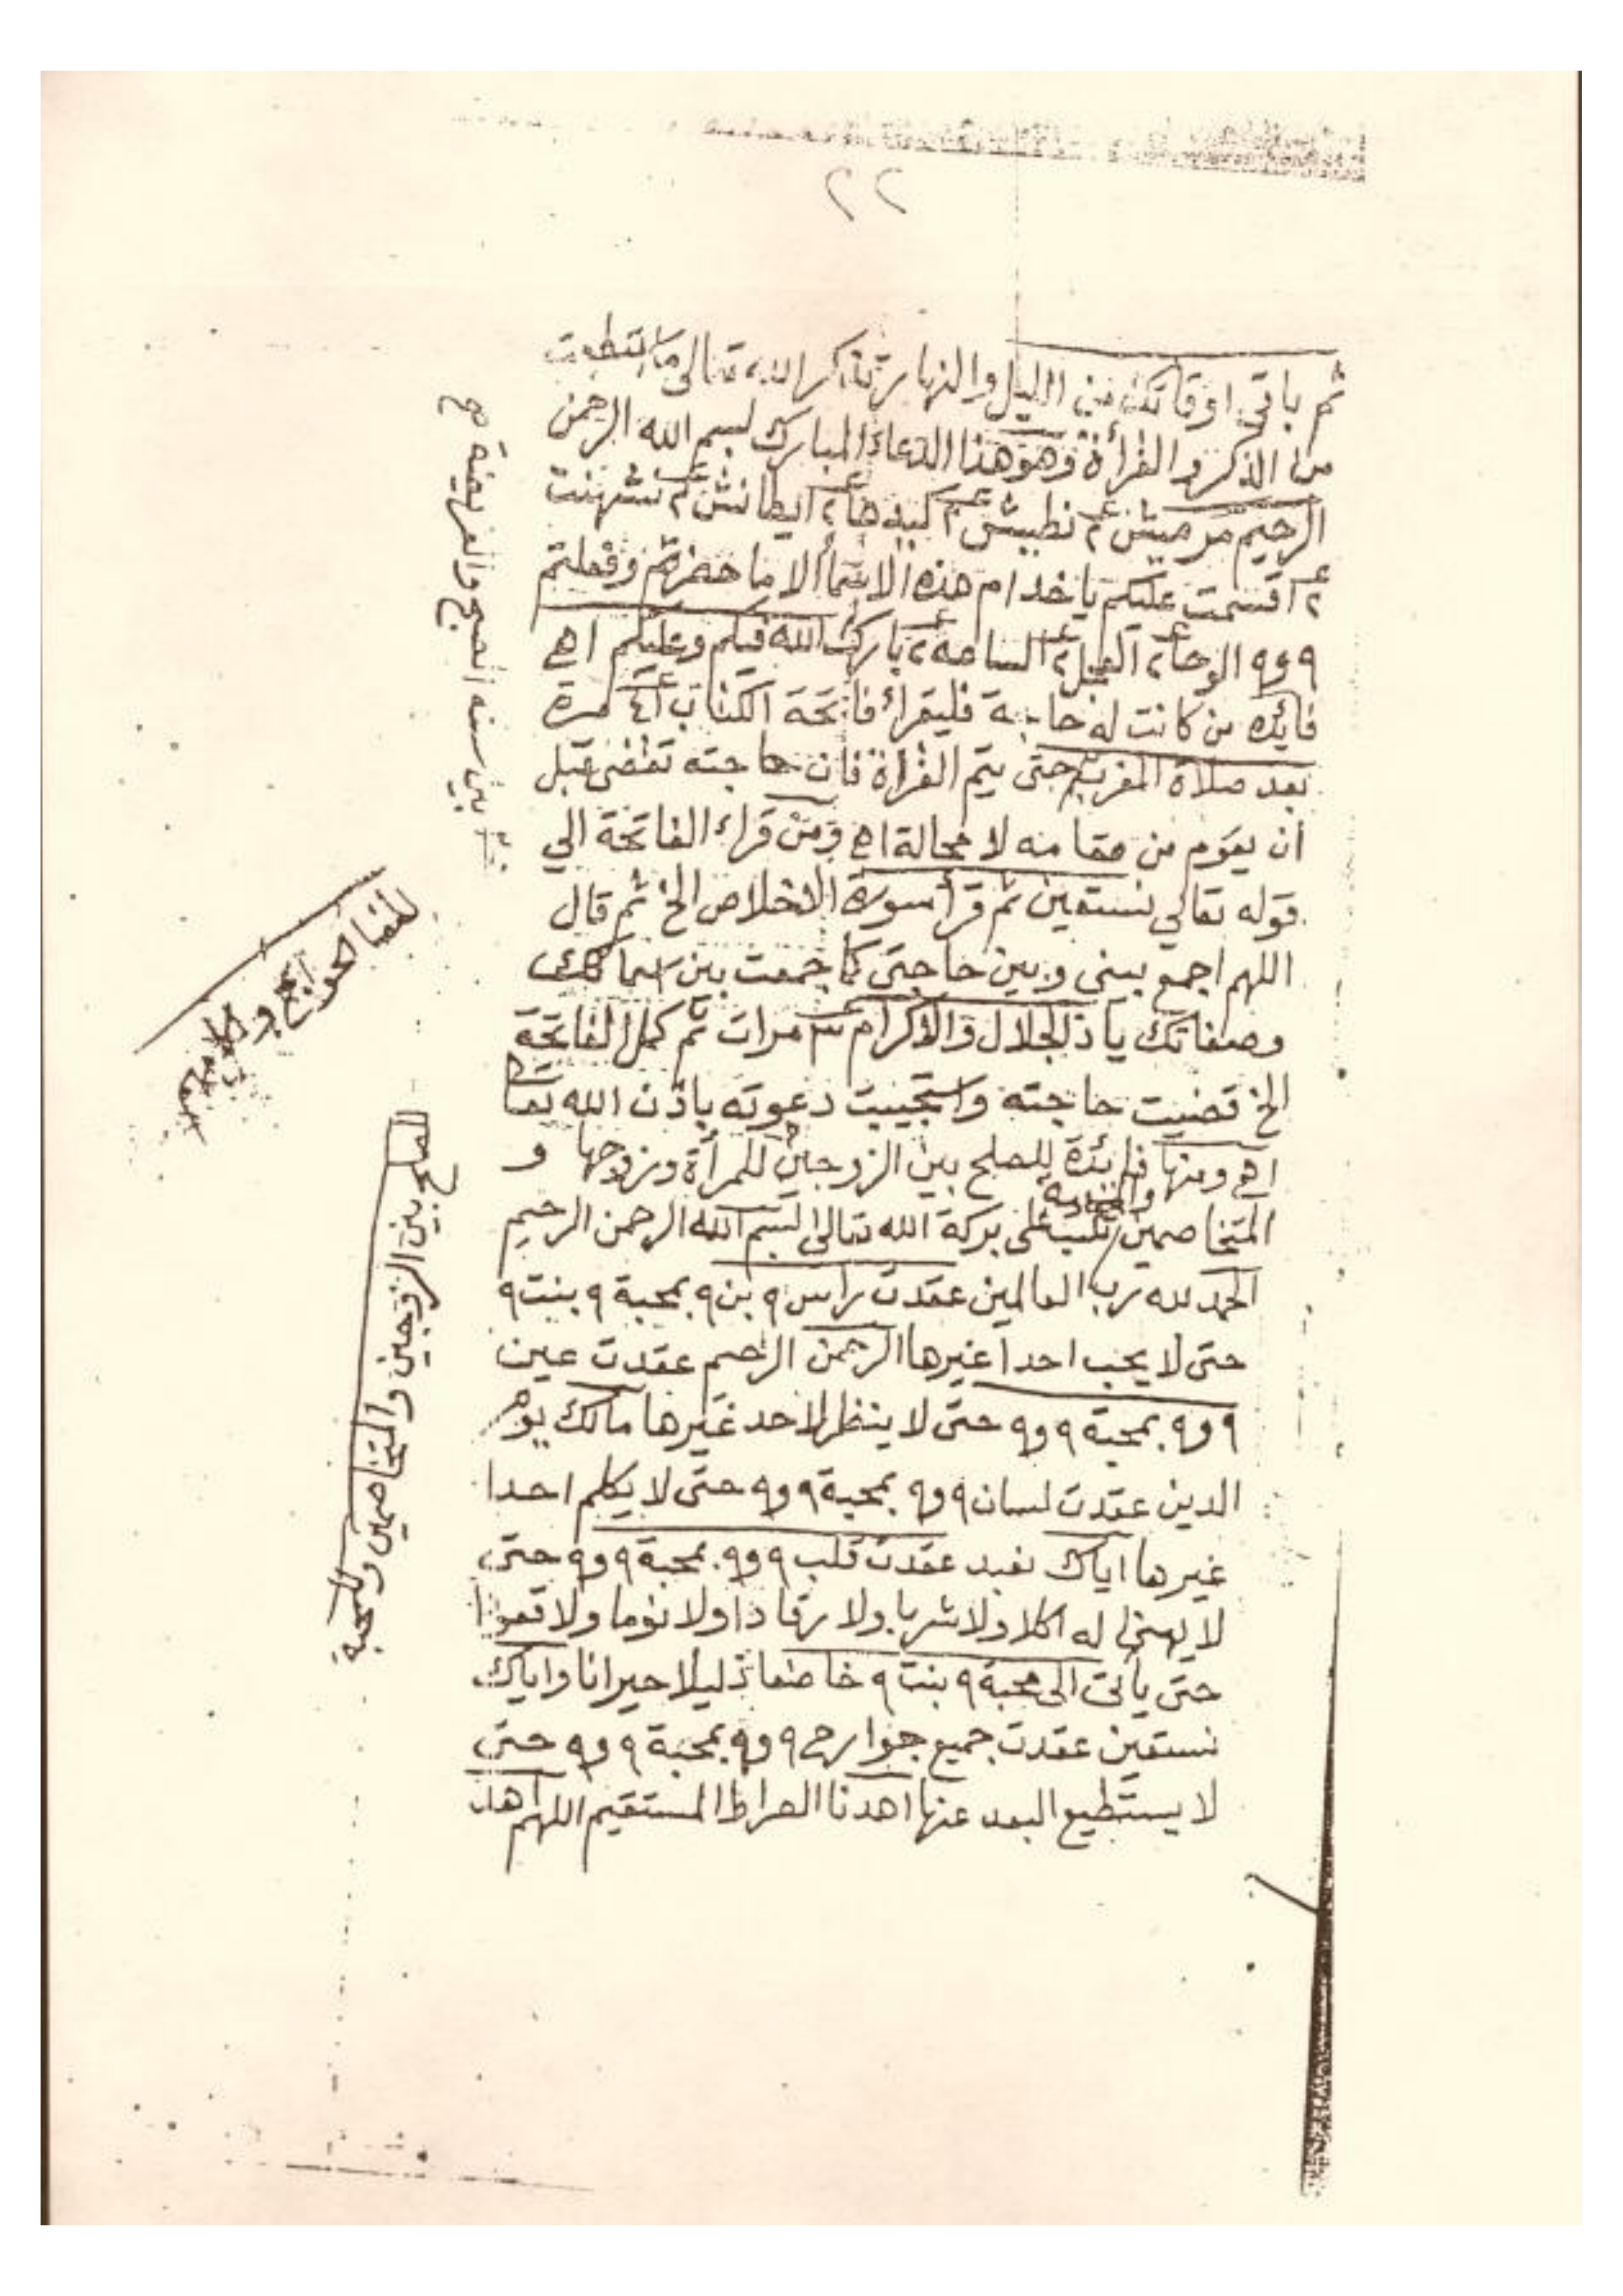 ٢٢
ثم باقي اوقاتك من الليل والنهار تذكر الله تعالى ما استطعت
من الذكر والقرأة وهو هذا الدعاء المبارك بسم الله الرحمن
الرحيم نطيش ع٢
ع٢ اقسمت عليكم يا خدام هذه الاسما الا ما حضرتم وفعلتم
٩ و٩ الوحا ع٢ العجل ع٢ الساعه ع٢ بارك الله فيكم وعليكم اهى
فائده من كانت له حاجة فليقرأ فاتحة الكتاب مرة
بعد صلاة المغرب حتى يتم القراة فان حاجته تقضى قبل
ان يقوم من مقامه لا محالة اهى ومن قراء الفاتحة الي
قوله تعالي نستعين ثم قرأ سورة الاخلاص الخ ثم قال
اللهم اجمع بينى وبين حاجتى كما جمعت بين اسمائك
وصفاتك يا ذلجلال والاكرام ٣ مرات ثم كمل الفاتحة
الخ قضيت حاجته واستجيبت دعوته باذن الله تعا
اهى ومنها فايدة للصلح بين الزوجين للمرأة وزوجها و
المتخاصمين تكتب على بركة الله تعالى بسم الله الرحمن الرحيم
الحمد لله رب العالمين عقدت راس ٩ بن ٩ بمحبة ٩ بنت ٩
حتى لا يحب احدا غيرها الرحمن الرحيم عقدت عين
٩ و٩ بمحبة ٩ و٩ حتى لا ينظر لاحد غيرها مالك يوم
الدين عقدت لسان ٩ و٩ بمحبة ٩ و٩ حتى لا يكلم احدا
غيرها اياك نعبد عقدت قلب ٩ و٩ بمحبة ٩ و٩ حتى
لا يهنى له اكلا ولا شربا ولا رقادا ولا نوما ولا قعودا
حتى ياتى الى محبة ٩ بنت ٩ خاضعا ذليلا حيرانا واياك
نستعين عقدت جميع جوارح ٩ و٩ بمحبة ٩ و٩ حتى
لا يستطيع البعد عنها اهدنا الصراط المستقيم اللهم اهد
بين سنه الصبح والفريضة صح
لقضا الحوايج
للصلح بين الزوجين والمتخاصمين وللمحبة